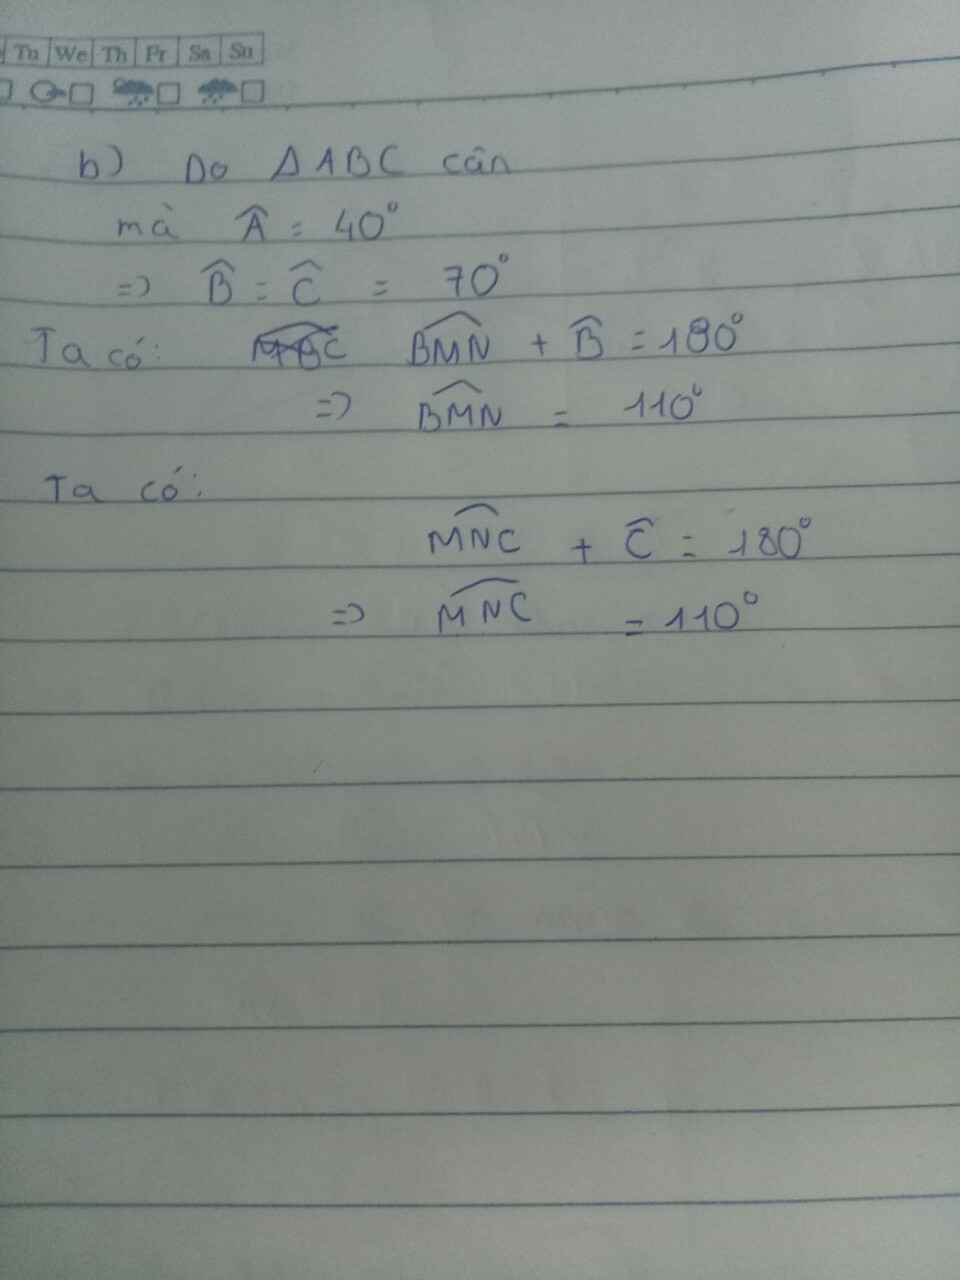 Tu We Th Fr Sa Su
b) Do ΔABC cân
mà Â = 40°
=> B̂ = Ĉ = 70°
Ta có: BMN̂ + B̂ = 180°
=> BMN̂ = 110°
Ta có:
MNĈ + Ĉ = 180°
=> MNĈ = 110°